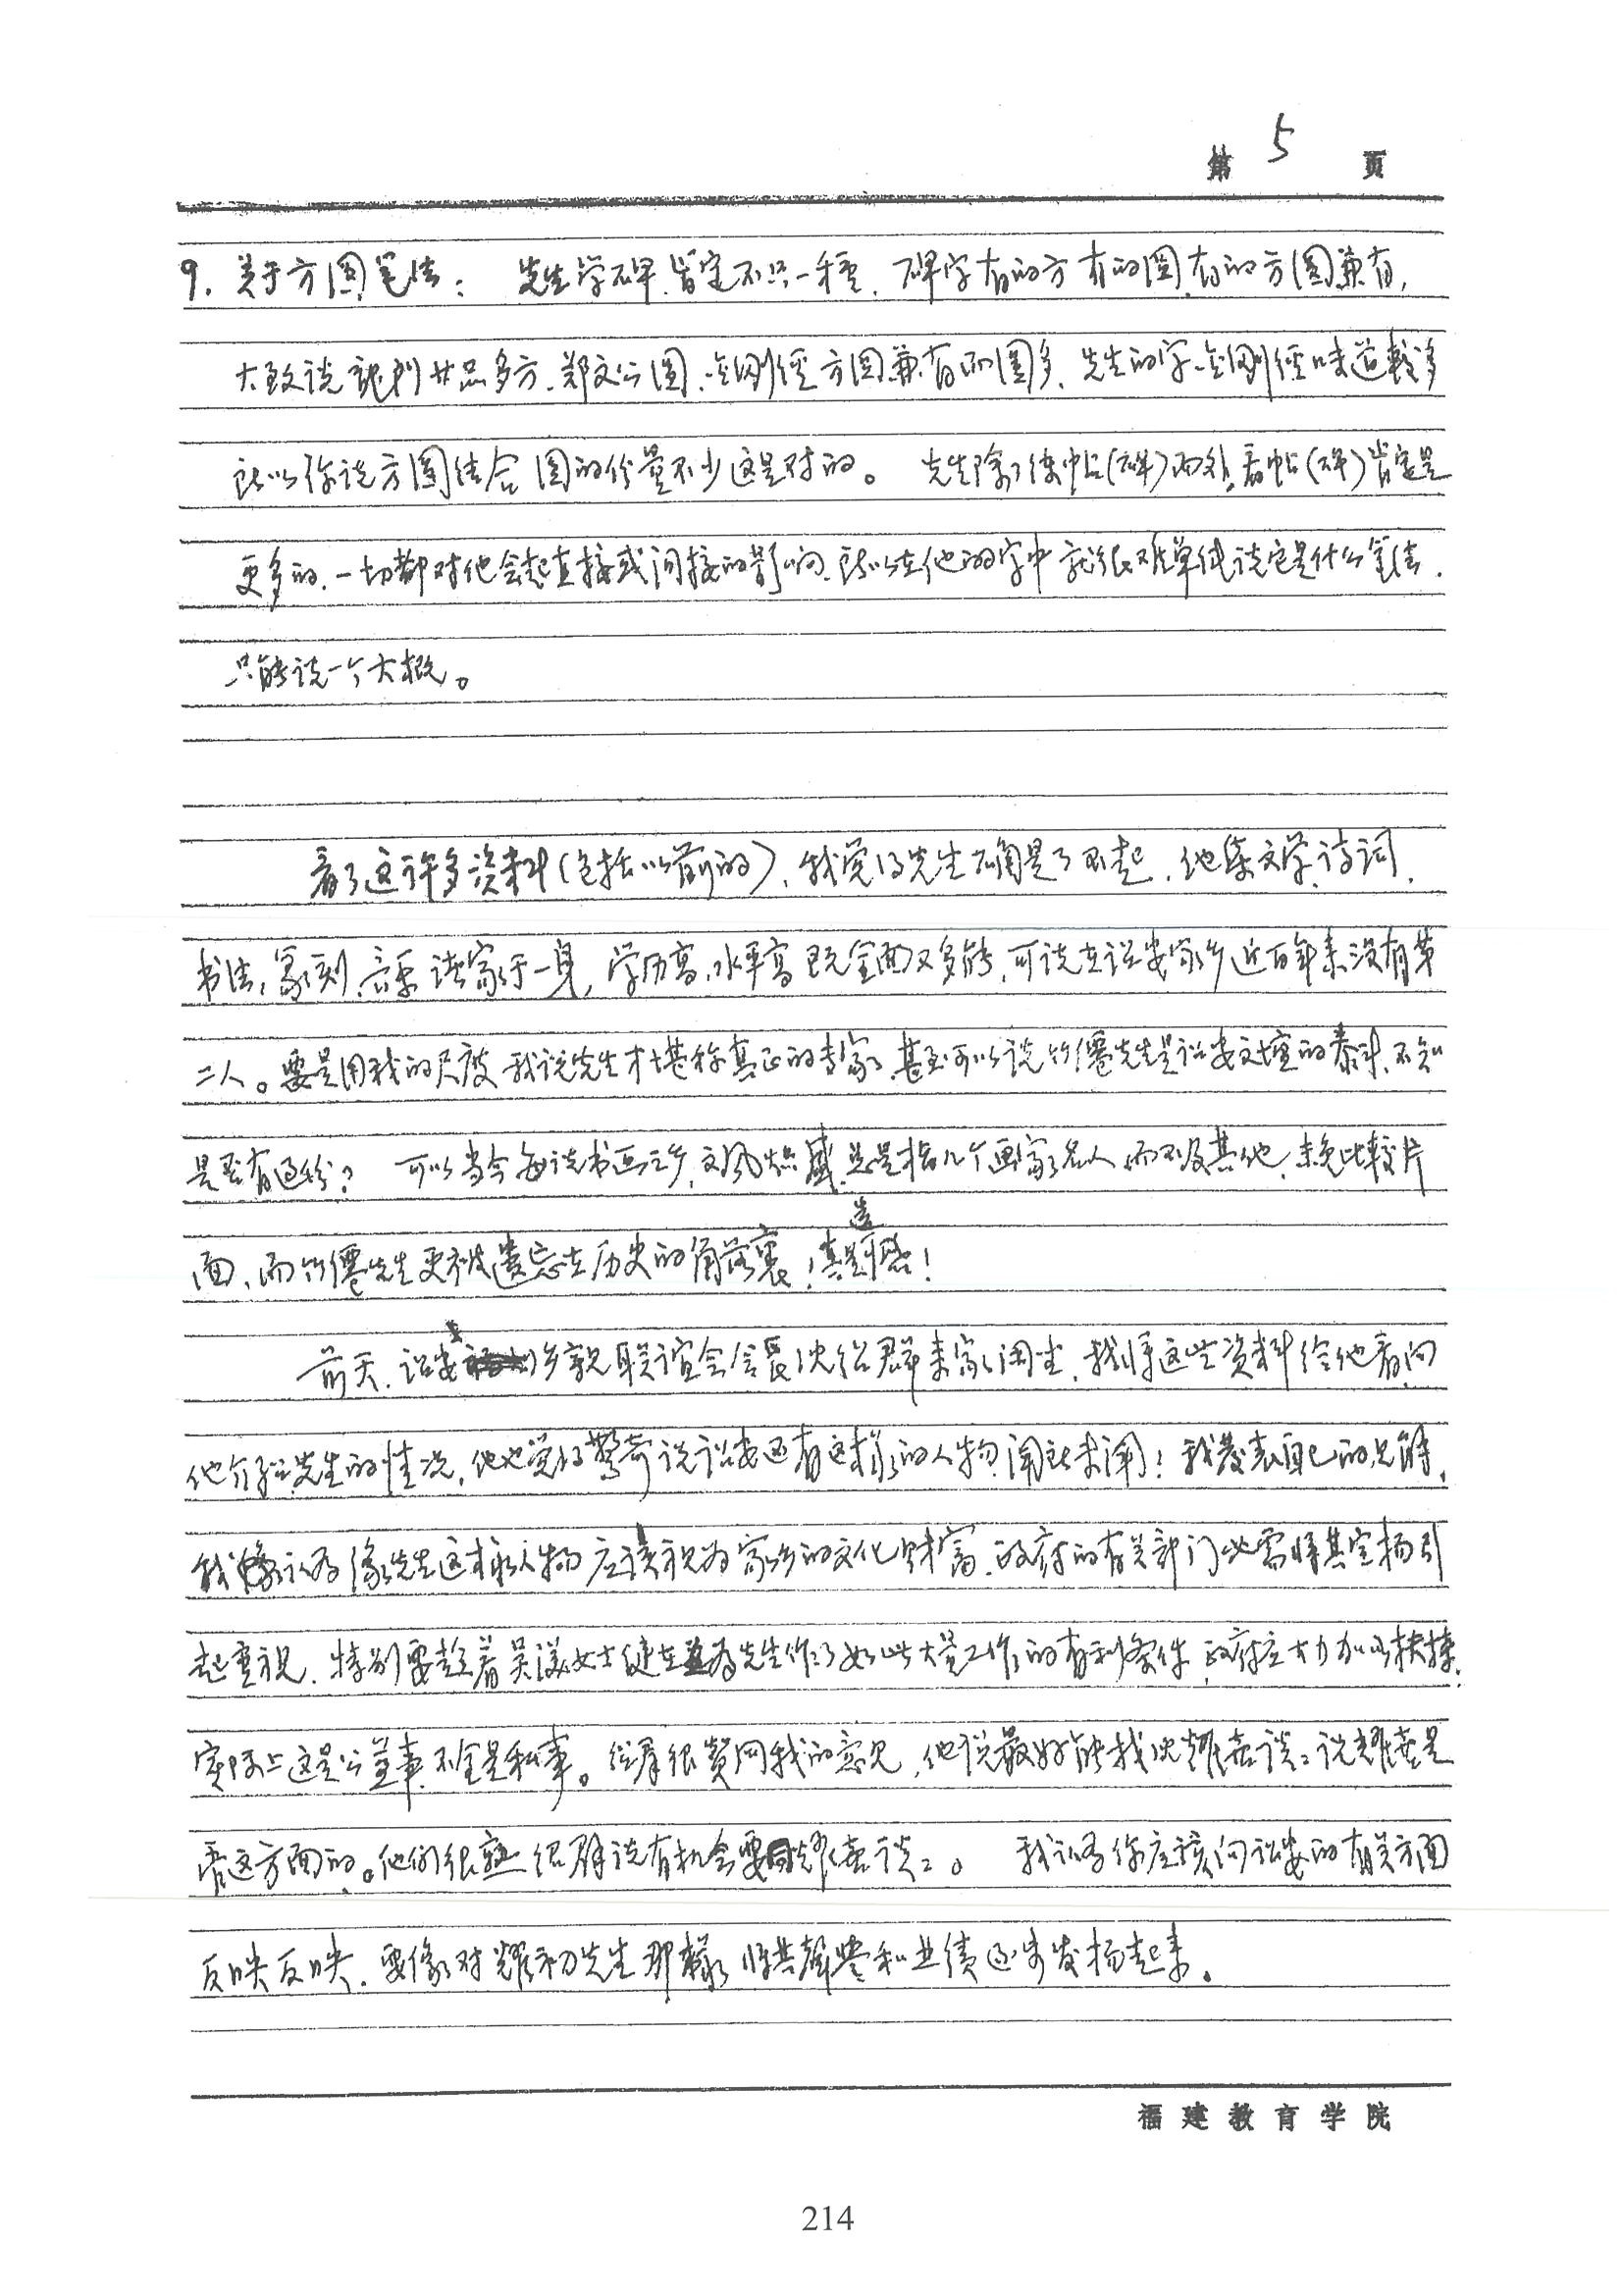 第 5 页
9. 关于方圆笔法： 先生学碑，肯定不只一种，碑字有的方有的圆，有的方圆兼有，
大致说龙门廿品多方，郑文公圆，金刚经方圆兼有而圆多，先生的字，金刚经味道较多
所以你说方圆结合圆的份量不少这是对的。 先生除了练帖（碑）而外，看帖（碑）肯定是
更多的，一切都对他会起直接或间接的影响，所以在他的字中就很难单纯说它是什么笔法，
只能说一个大概。
看了这许多资料（包括以前的），我觉得先生确是了不起，他集文学、诗词、
书法、篆刻、音乐诸家于一身，学历高，水平高既全面又多能，可说在诏安家乡近百年来没有第
二人。要是用我的尺度我说先生才堪称真正的专家，甚至可以说竹僊先生是诏安文坛的泰斗，不知
是否有过份？ 可以当今每说书画之乡，文风炽盛，总是指几个画家名人而不及其他，未免比较片
面，而竹僊先生更被遗忘在历史的角落裏！真是遗憾！
前天，诏安乡亲联谊会会长沈绍群来家闲坐，我将这些资料给他看，向
他介绍先生的情况，他也觉得惊奇说诏安还有这样的人物，闻所未闻！我发表自己的见解，
我认为像先生这样的人物应该视为家乡的文化财富，政府的有关部门必需将其宣扬引
起重视，特别要趁着吴漾女士健在并为先生作了如此大量工作的有利条件，政府应大力加以扶持，
实际上这是公益事，不全是私事。绍群很赞同我的意见，他说最好能找沈耀喜谈谈，说耀喜是
管这方面的。他们很熟绍群说有机会要同耀喜谈谈。 我认为你应该向诏安的有关方面
反映反映，要像对耀初先生那样，将其声誉和业绩逐步发扬起来。
福建教育学院
214